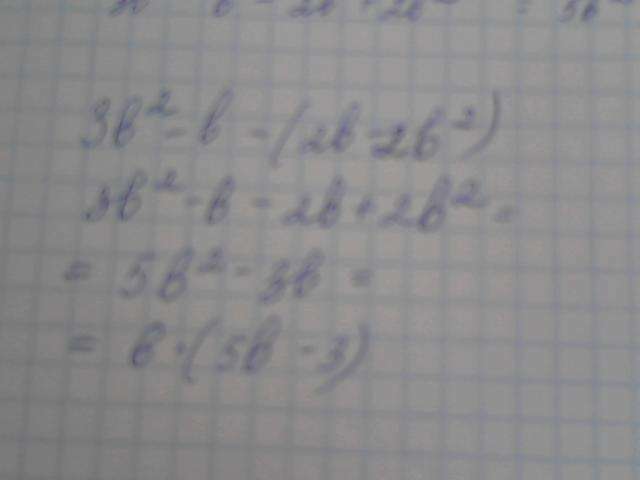 3b² - b - (2b - 2b²)
3b² - b - 2b + 2b² =
= 5b² - 3b =
= b · (5b - 3)